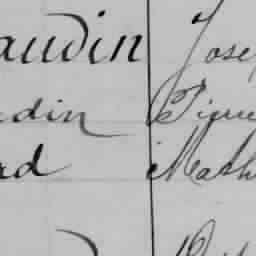 audin Josep
udin Pierre
rd Math